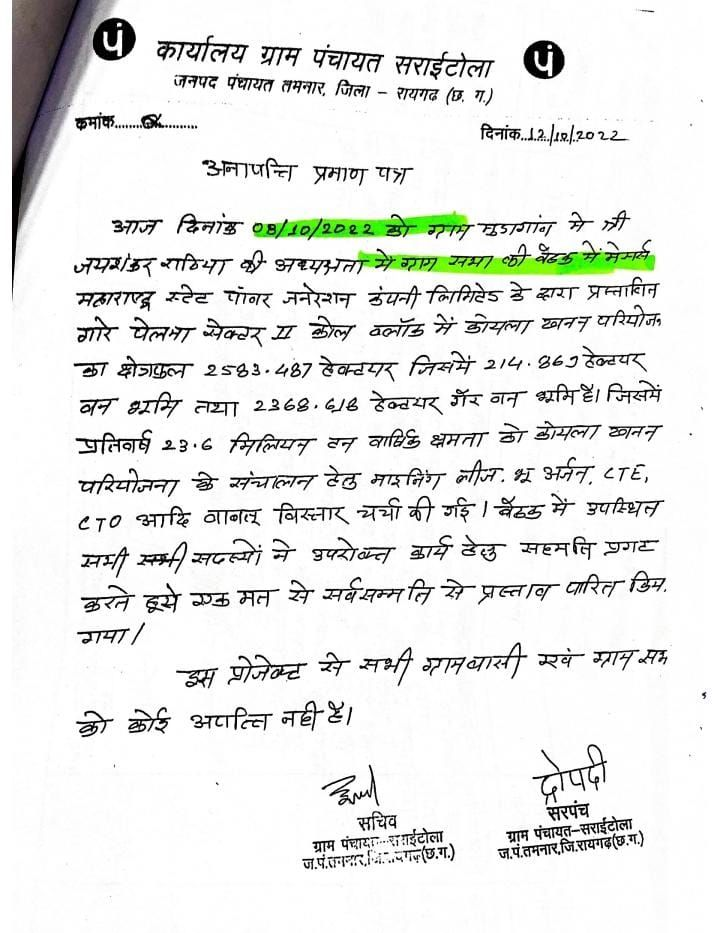 पं कार्यालय ग्राम पंचायत सराईटोला पं
जनपद पंचायत तमनार, जिला - रायगढ़ (छ. ग.)
कमांक.................. दिनांक..12/10/2022
अनापत्ति प्रमाण पत्र
आज दिनांक 08/10/2022 को ग्राम मुडागांव मे श्री
जयशंकर राठिया की अध्यक्षता मे ग्राम सभा की बैठक में मेसर्स
महाराष्ट्र स्टेट पॉवर जनरेशन कंपनी लिमिटेड के द्वारा प्रस्तावित
गारे पेलमा सेक्टर II कोल ब्लॉक में कोयला खनन परियोजन
का क्षेत्रफल 2583.487 हेक्टयर जिसमें 214.869 हेक्टयर
वन भूमि तथा 2368.618 हेक्टयर गैर वन भूमि है। जिसमें
प्रतिवर्ष 23.6 मिलियन टन वार्षिक क्षमता को कोयला खनन
परियोजना के संचालन हेतु माइनिंग लीज, भू अर्जन, CTE,
CTO आदि बाबत् विस्तार चर्चा की गई। बैठक में उपस्थित
सभी सदस्यों ने उपरोक्त कार्य हेतु सहमति प्रगट
करते हुये एक मत से सर्वसम्मति से प्रस्ताव पारित किय
गया।
इस प्रोजेक्ट से सभी ग्रामवासी एवं ग्राम सभ
को कोई अपत्ति नही है।
द्रोपदी
सचिव सरपंच
ग्राम पंचायत-सराईटोला ग्राम पंचायत-सराईटोला
ज.पं.तमनार,जि.रायगढ़(छ.ग.) ज.पं.तमनार,जि.रायगढ़(छ.ग.)